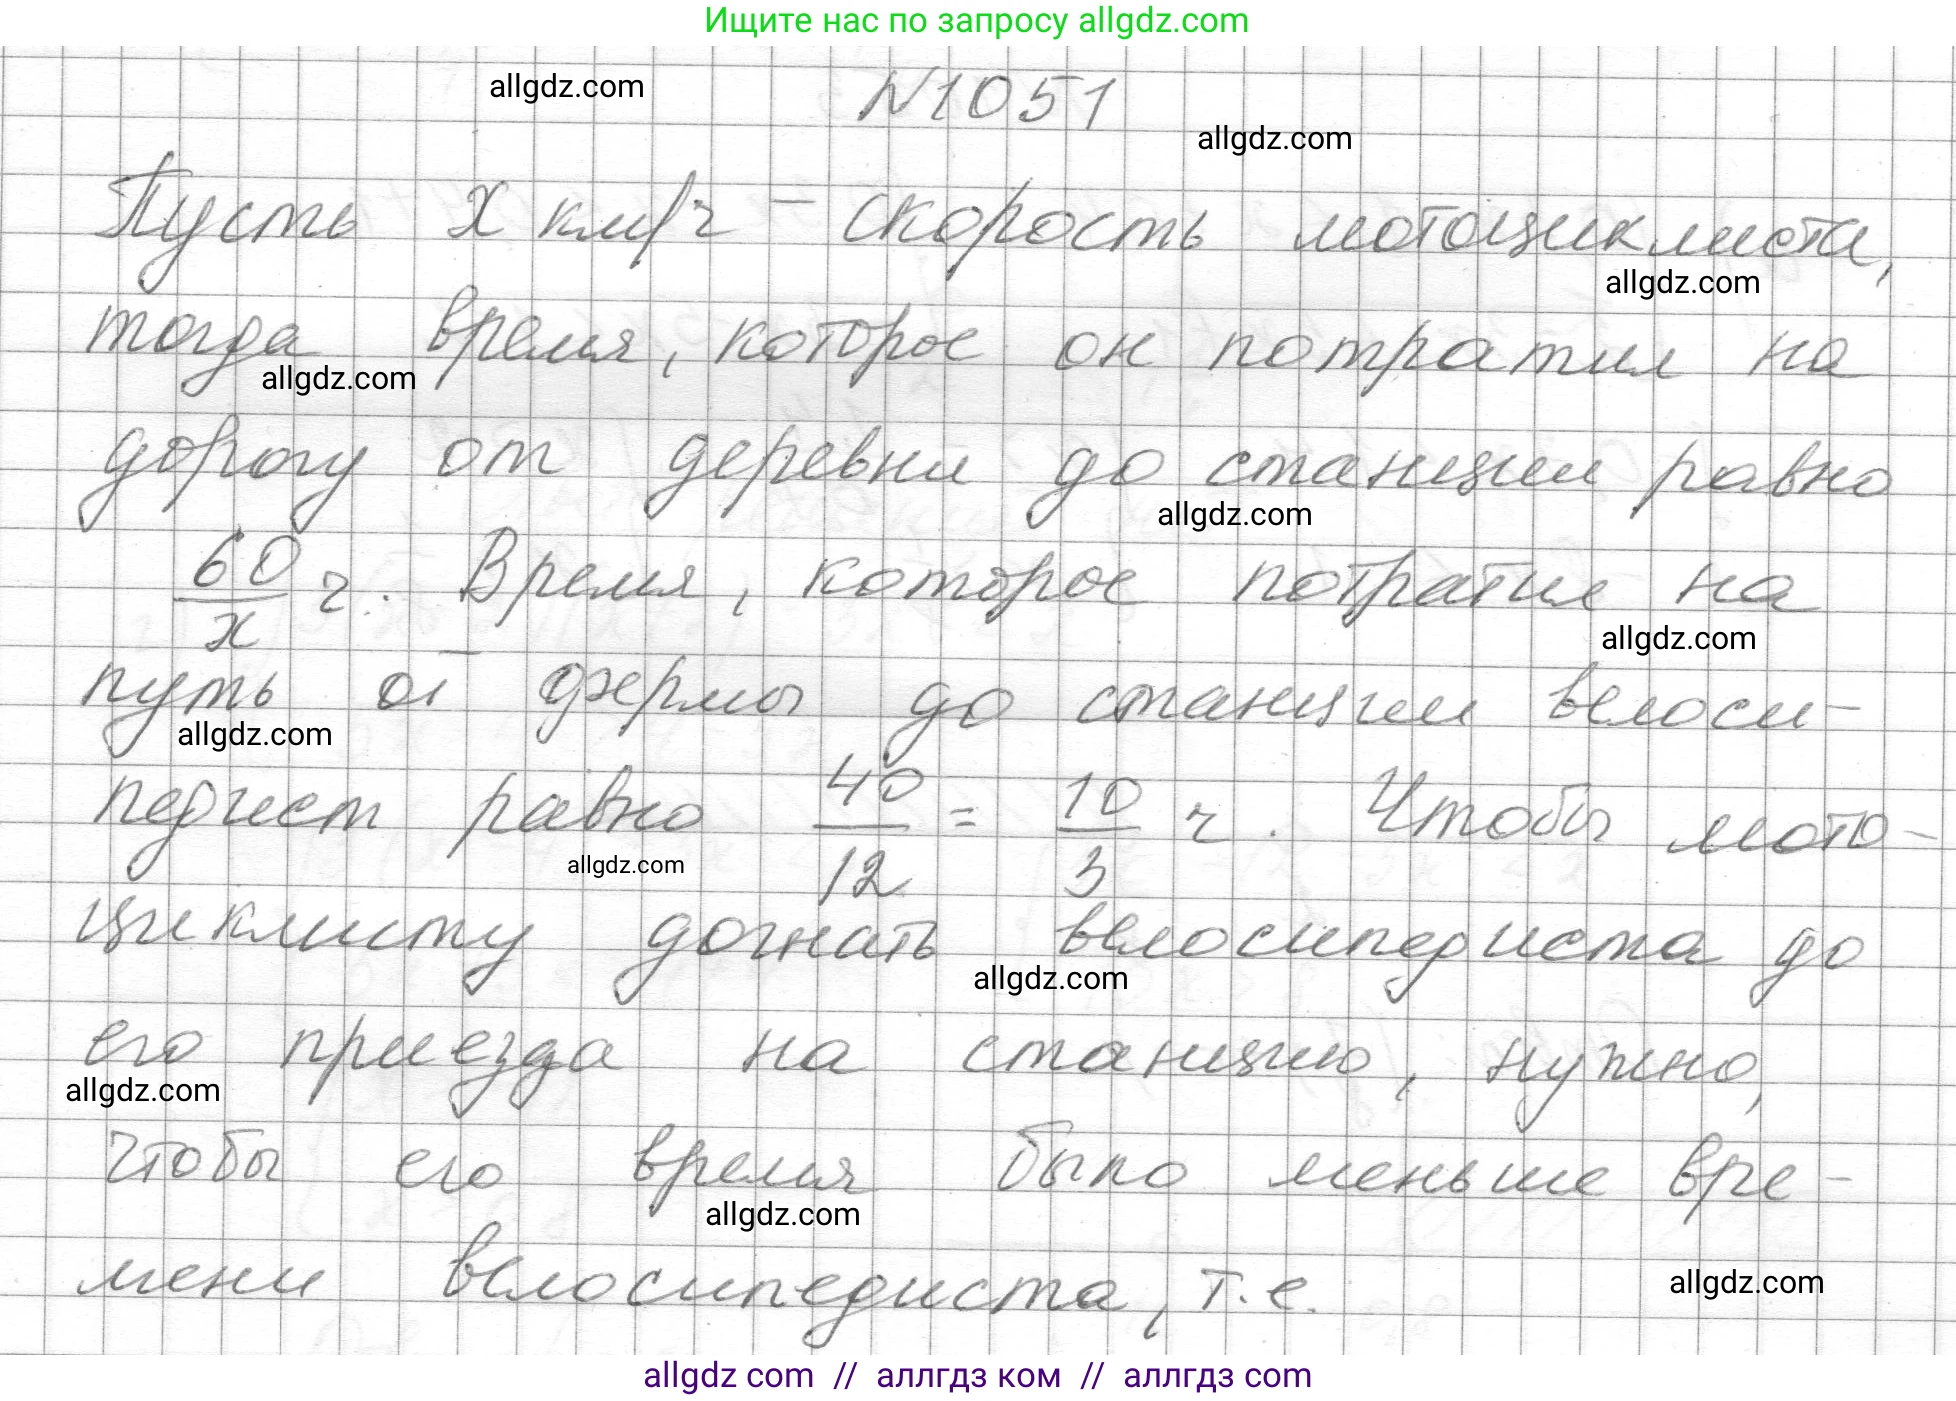 Ищите нас по запросу allgdz.com
allgdz.com
№1051
allgdz.com
Пусть x км/ч – скорость мотоциклиста,
allgdz.com
тогда время, которое он потратил на
allgdz.com
дорогу от деревни до станции равно
allgdz.com
60/x ч. Время, которое потратил на
allgdz.com
путь от фермы до станции велоси-
allgdz.com
педист равно 40/12 = 10/3 ч. Чтобы мото-
allgdz.com
циклисту догнать велосипедиста до
allgdz.com
его приезда на станцию, нужно,
allgdz.com
чтобы его время было меньше вре-
allgdz.com
мени велосипедиста, т.е.
allgdz.com
allgdz com // аллгдз ком // аллгдз com